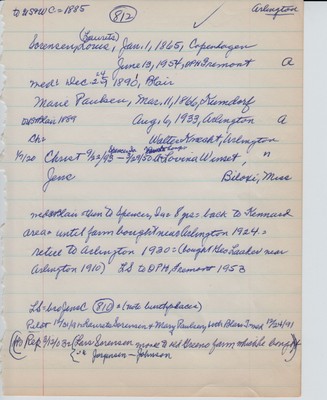 to USA WC = 1885 (812) Arlington
(Lauritz)
Sorensen, Louie, Jan. 1, 1865, Copenhagen
June 13, 1954, DPH Fremont A
med: Dec. 24 1890, Blair
Marie Paulsen, Mar. 11, 1866,
Blair 1889 Aug. 6, 1933, Arlington A
Ch: Walter Knecht, Arlington
Christ 9/22/93 - 3/29/50 Lovena Wenset, "
Jens Biloxi, Miss
med Blair then to Spencer, Ia 8 yrs = back to Kennard
area until farm bought near Arlington 1924 =
retire to Arlington 1930 = (bought Geo farm near
Arlington 1910) LS to DPH, Fremont 1953
LS = bro Jens C (810) = (note birthplaces)
Pilot 12/31/91 = Laurits Sorensen & Mary Paulsen, both Blair med 12/24/91
Rep 2/12/03 = Lars Sorensen move to old farm which he bought
Jorgensen - Johnson